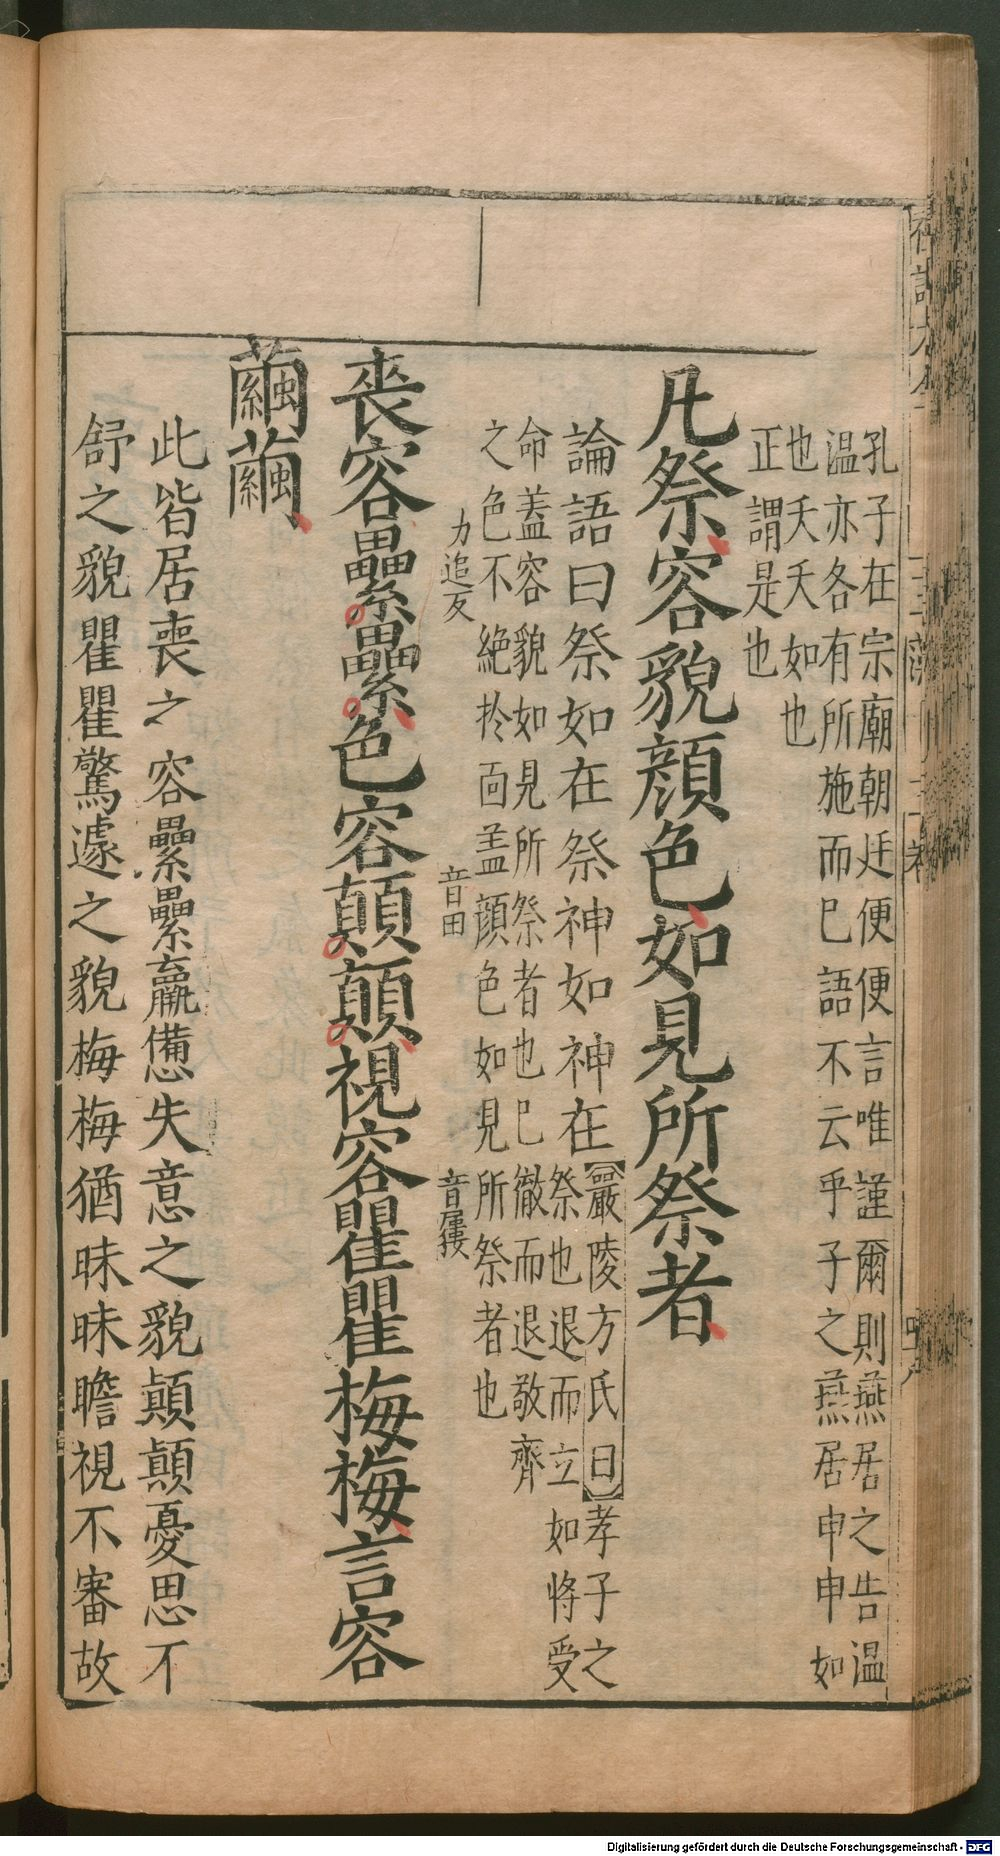 孔子在宗廟朝廷便便言唯謹爾則燕居之告温
温亦各有所施而巳語不云乎子之燕居申申如
也夭夭如也
正謂是也
凡祭容貌顔色如見所祭者
論語曰祭如在祭神如神在
嚴陵方氏曰孝子之
祭也退而立如將受
命盖容貌如見所祭者也巳徹而退敬齊
之色不絶扵面盖顔色如見所祭者也
力追反
音田
音屨
喪容纍纍色容顛顛視容瞿瞿梅梅言容
繭繭
此皆居喪之容纍纍羸憊失意之貌顛顛憂思不
舒之貌瞿瞿驚遽之貌梅梅猶昧昧瞻視不審故
Digitalisierung gefördert durch die Deutsche Forschungsgemeinschaft - DFG